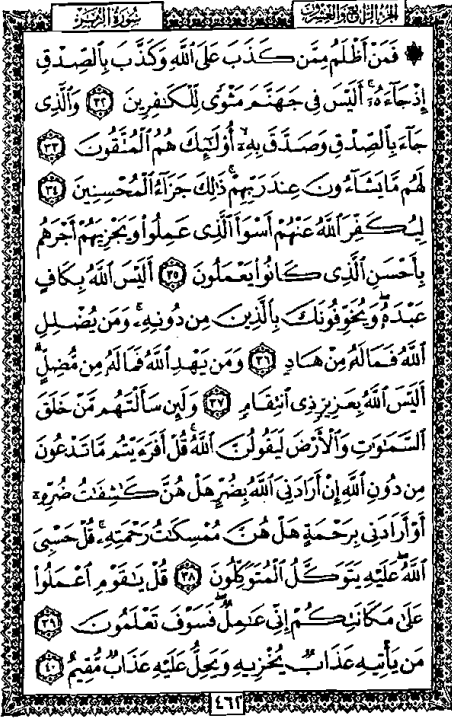 الجزء الرابع والعشرون
سورة الزمر
۞ فَمَنْ أَظْلَمُ مِمَّن كَذَبَ عَلَى ٱللَّهِ وَكَذَّبَ بِٱلصِّدْقِ
إِذْ جَآءَهُۥٓ ۚ أَلَيْسَ فِى جَهَنَّمَ مَثْوًى لِّلْكَـٰفِرِينَ ٣٢ وَٱلَّذِى
جَآءَ بِٱلصِّدْقِ وَصَدَّقَ بِهِۦٓ ۙ أُو۟لَـٰٓئِكَ هُمُ ٱلْمُتَّقُونَ ٣٣
لَهُم مَّا يَشَآءُونَ عِندَ رَبِّهِمْ ۚ ذَٰلِكَ جَزَآءُ ٱلْمُحْسِنِينَ ٣٤
لِيُكَفِّرَ ٱللَّهُ عَنْهُمْ أَسْوَأَ ٱلَّذِى عَمِلُوا۟ وَيَجْزِيَهُمْ أَجْرَهُم
بِأَحْسَنِ ٱلَّذِى كَانُوا۟ يَعْمَلُونَ ٣٥ أَلَيْسَ ٱللَّهُ بِكَافٍ
عَبْدَهُۥ ۖ وَيُخَوِّفُونَكَ بِٱلَّذِينَ مِن دُونِهِۦ ۚ وَمَن يُضْلِلِ
ٱللَّهُ فَمَا لَهُۥ مِنْ هَادٍ ٣٦ وَمَن يَهْدِ ٱللَّهُ فَمَا لَهُۥ مِن مُّضِلٍّ ۗ
أَلَيْسَ ٱللَّهُ بِعَزِيزٍ ذِى ٱنتِقَامٍ ٣٧ وَلَئِن سَأَلْتَهُم مَّنْ خَلَقَ
ٱلسَّمَـٰوَٰتِ وَٱلْأَرْضَ لَيَقُولُنَّ ٱللَّهُ ۚ قُلْ أَفَرَءَيْتُم مَّا تَدْعُونَ
مِن دُونِ ٱللَّهِ إِنْ أَرَادَنِىَ ٱللَّهُ بِضُرٍّ هَلْ هُنَّ كَـٰشِفَـٰتُ ضُرِّهِۦٓ
أَوْ أَرَادَنِى بِرَحْمَةٍ هَلْ هُنَّ مُمْسِكَـٰتُ رَحْمَتِهِۦ ۚ قُلْ حَسْبِىَ
ٱللَّهُ ۖ عَلَيْهِ يَتَوَكَّلُ ٱلْمُتَوَكِّلُونَ ٣٨ قُلْ يَـٰقَوْمِ ٱعْمَلُوا۟
عَلَىٰ مَكَانَتِكُمْ إِنِّى عَـٰمِلٌ ۖ فَسَوْفَ تَعْلَمُونَ ٣٩
مَن يَأْتِيهِ عَذَابٌ يُخْزِيهِ وَيَحِلُّ عَلَيْهِ عَذَابٌ مُّقِيمٌ ٤٠
٤٦٢